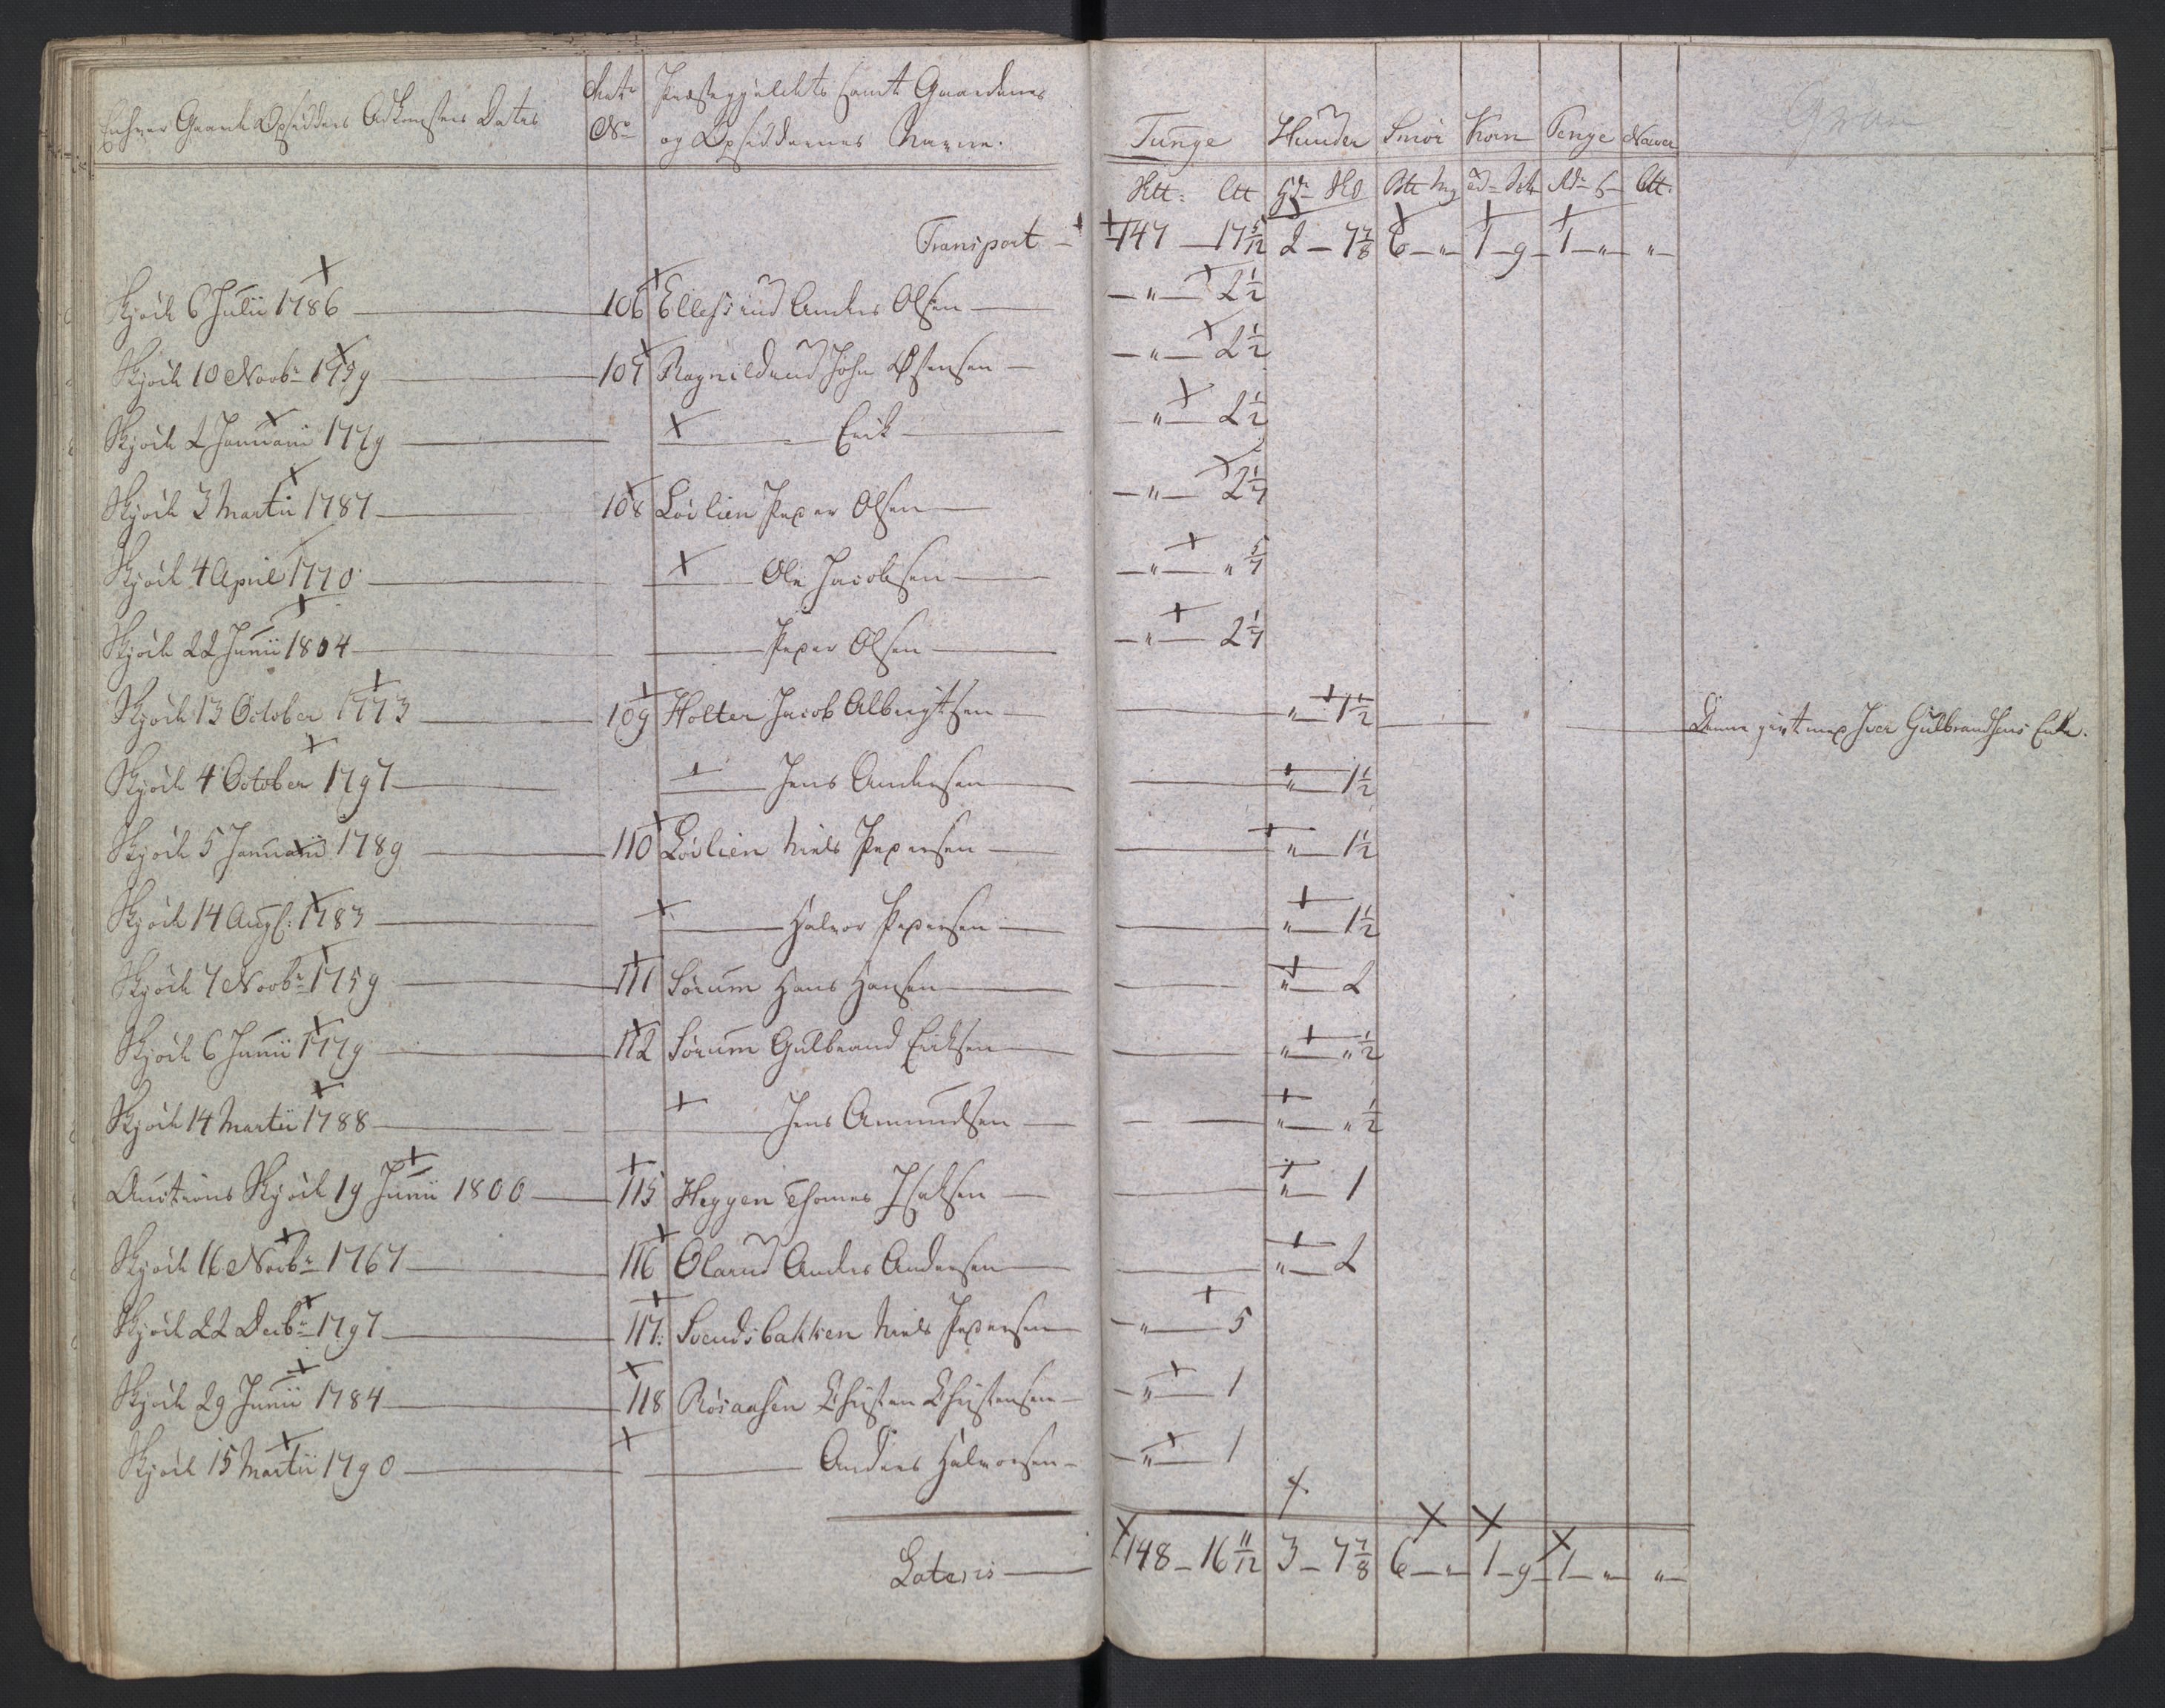 Enhver Gaards Opsidders Adkomstes Datis
Matr No
Præstegjeldets samt Gaardenes og Opsiddernes Navne.
Tunge Huuder Smör Korn Penge Næver
Gran
Transport — 147 — 17 5/12 2 — 7 7/8 6 — „ — 1 — 9 — 1 — „ — „ —
Skjöde 6 Julii 1786 — 106 Ellefsrud Anders Olsen — „ — 2 1/2
Skjöde 10 Novbr 1759 — 107 Ragnildrud John Østensen — „ — 2 1/2
Skjöde 2 Januarii 1779 — Erik — „ — 2 1/2
Skjöde 3 Martii 1787 — 108 Lövlien Peder Olsen — „ — 2 1/7
Skjöde 4 April 1770 — Ole Jacobsen — „ — „ 5/7
Skjöde 22 Junii 1804 — Peder Olsen — „ — 2 1/7
Skjöde 13 October 1773 — 109 Holter Jacob Albregtsen — „ — 1 1/2 — Denne givt med Iver Gulbrandsens Enke.
Skjöde 4 October 1797 — Jens Andersen — „ — 1 1/2
Skjöde 5 Januarii 1789 — 110 Lövlien Niels Pedersen — „ — 1 1/2
Skjöde 14 Aug: 1783 — Halvor Pedersen — „ — 1 1/2
Skjöde 7 Novbr 1759 — 111 Sörum Hans Hansen — „ — 2
Skjöde 6 Junii 1779 — 112 Sörum Gulbrand Eriksen — „ — „ 1/2
Skjöde 14 Martii 1788 — Jens Amundsen — „ — „ 1/2
Auctions Skjöde 19 Junii 1800 — 115 Heggen Thomes Isaksen — „ — 1
Skjöde 16 Novbr 1767 — 116 Olarud Anders Andersen — „ — 2
Skjöde 22 Decbr 1797 — 117. Svendsbakken Niels Pedersen — „ — 5
Skjöde 29 Junii 1784 — 118 Rösaasen Christen Christensen — „ — 1
Skjöde 15 Martii 1790 — Anders Halvorsen — „ — 1
Lateris — 148 — 16 11/12 3 — 7 7/8 6 — „ — 1 — 9 — 1 — „ — „ —